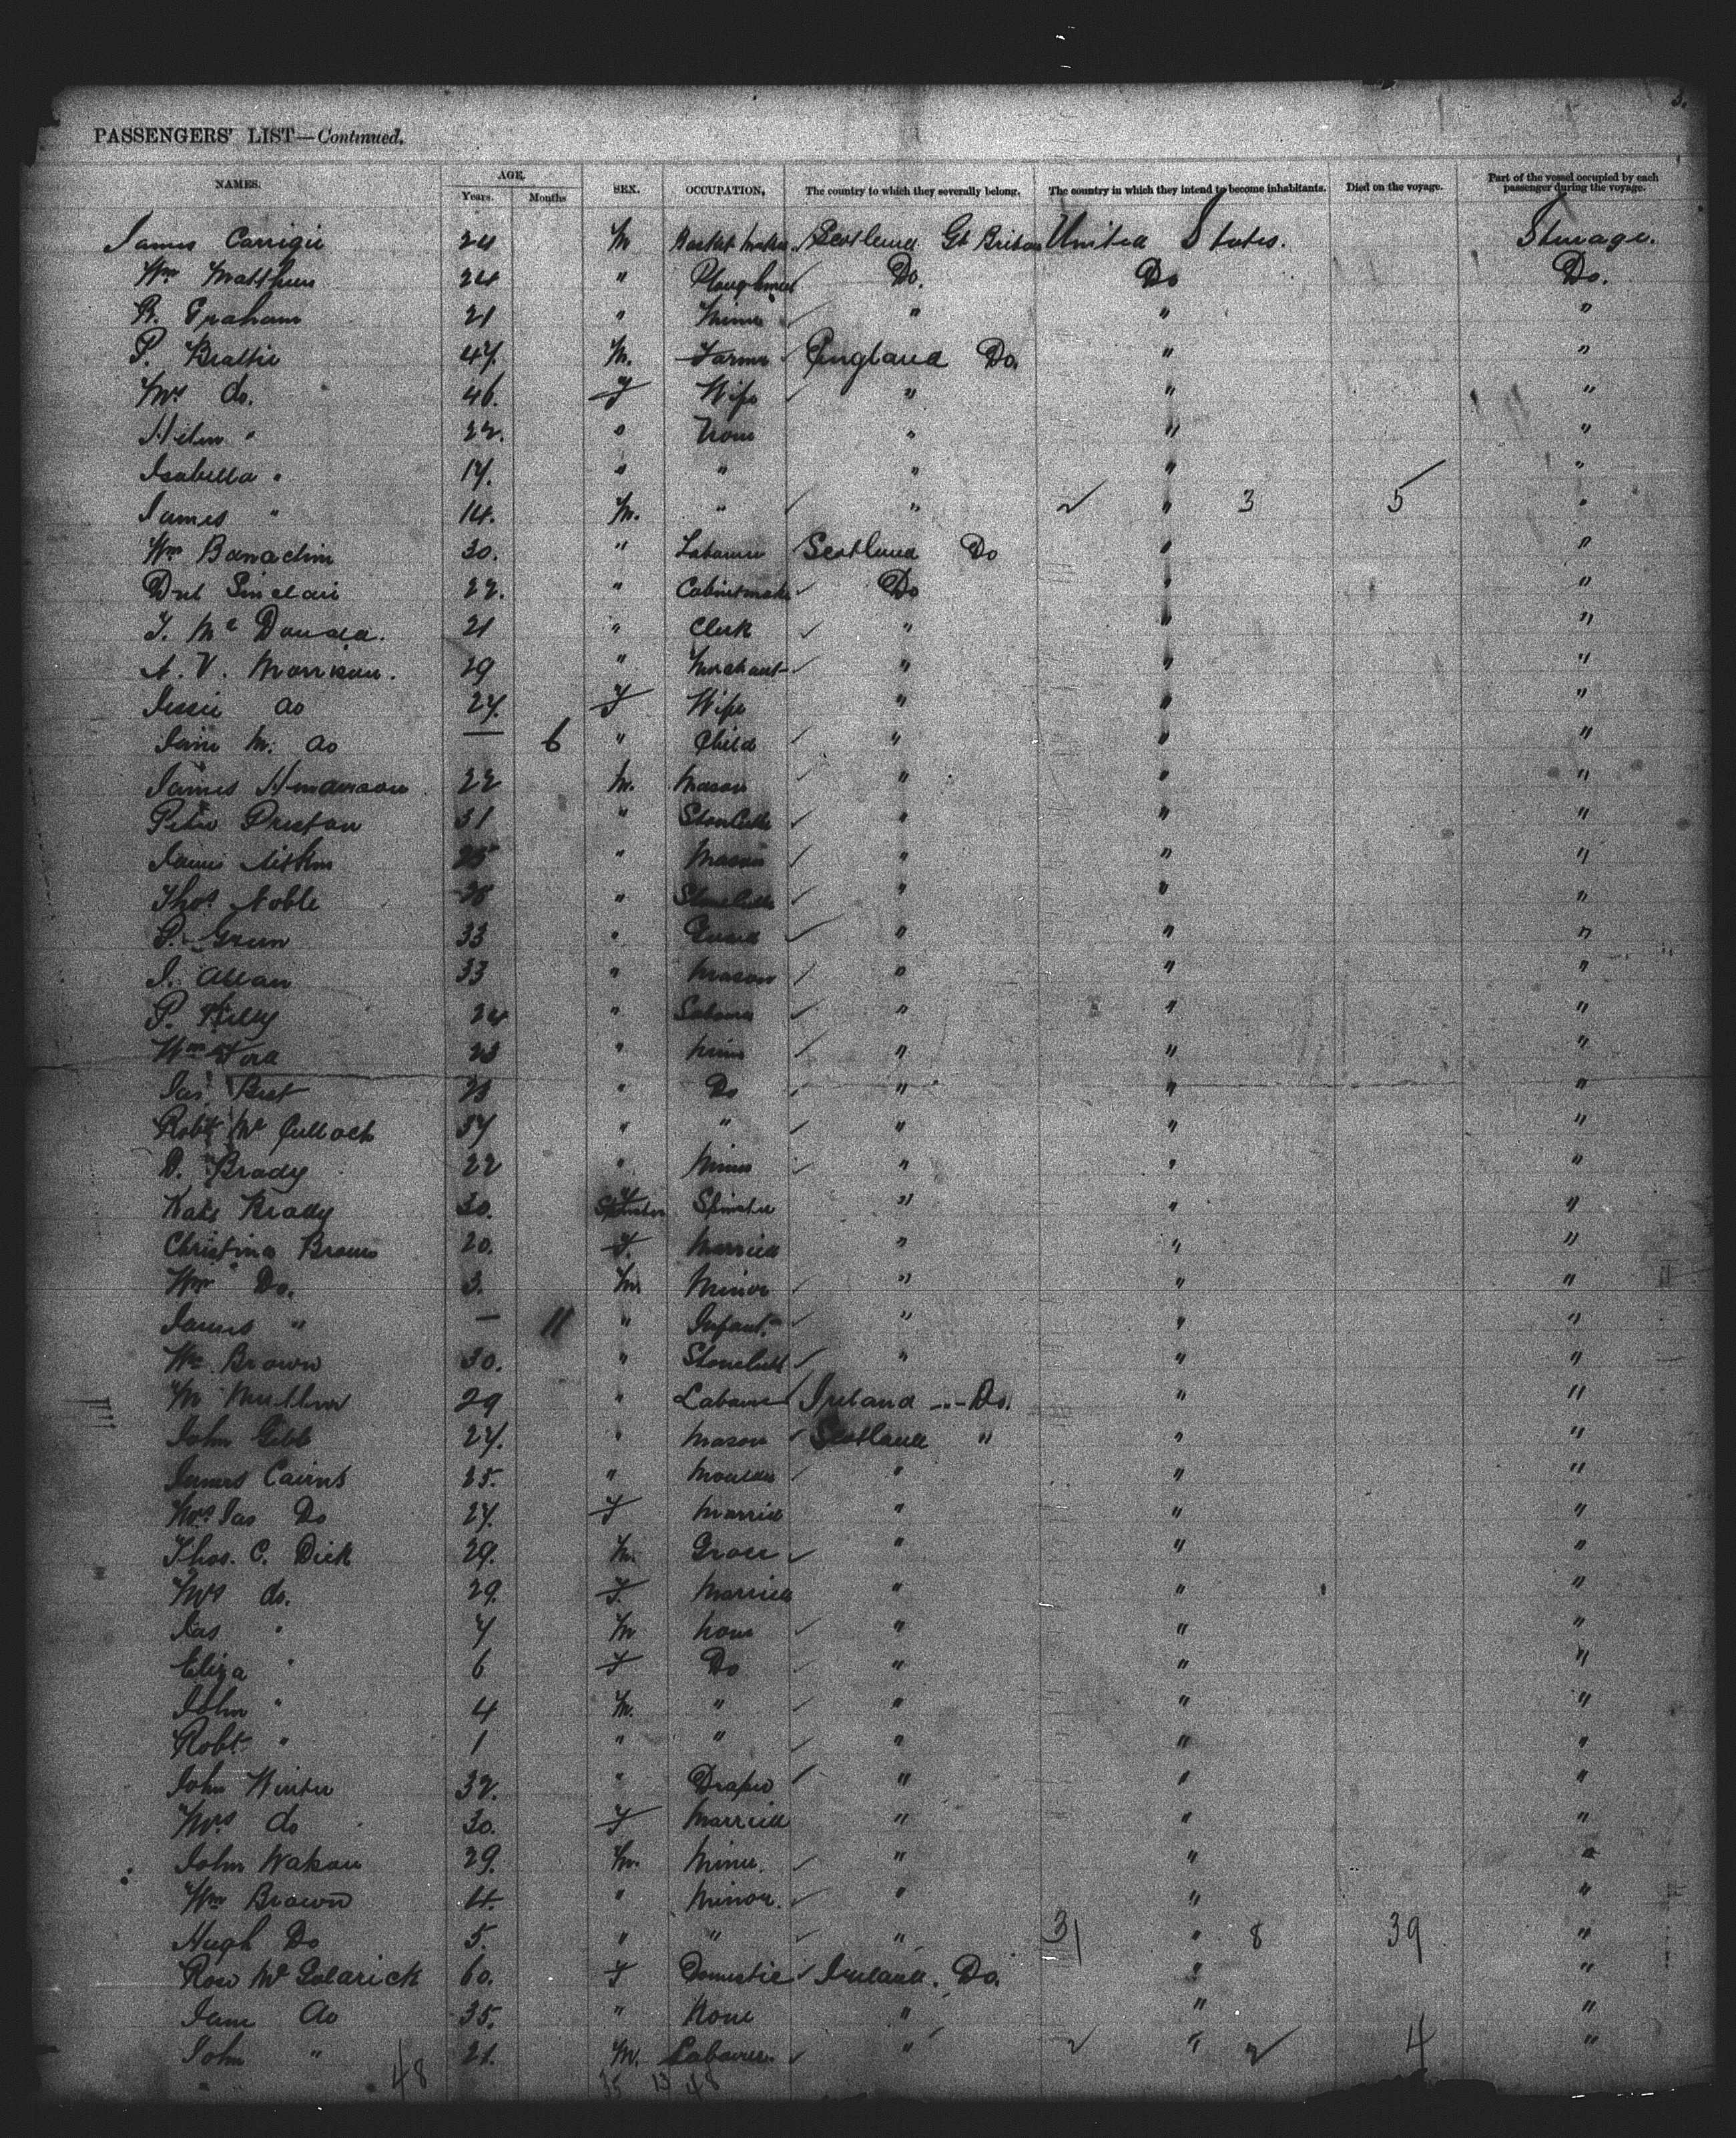 3.
PASSENGERS' LIST—Continued.
NAMES. AGE. Years. Months SEX. OCCUPATION. The country to which they severally belong. The country in which they intend to become inhabitants. Died on the voyage. Part of the vessel occupied by each passenger during the voyage.
James Carrigie 24 M Basket maker Scotland Gt Britain United States. Steerage.
Wm Matthew 24 " Ploughman Do. Do Do.
R. Graham 21 " Miner " " "
P. Beattie 47. M. Farmer England Do. " "
Mrs do. 46. F Wife " " "
Helen " 22. " None " " "
Isabella " 17. " " " " "
James " 14. M. " " " 3 5 "
Wm 30. " Labourer Scotland Do " "
Sinclair 22. " Cabinetmaker Do " "
T. Mc Donald. 21 " Clerk " " "
A. V. Morrison. 29 " Merchant " " "
Jessie do 27. F Wife " " "
Jane M. do — 6 " Child " " "
James 22 M. Mason " " "
Peter Preston 31 " Stonecutter " " "
James Aitken " Mason " " "
Thos. Noble " Stonecutter " " "
P. Green 33 " " " "
J. Allan 33 " Mason " " "
P. Kelly 24 " Labourer " " "
Wm Ford 23 " Miner " " "
Jas. 23 " Do " " "
Robt Mc Culloch 37 " " " " "
D. Brady 22 " Miner " " "
Kate Brady 30. F Spinster Spinster " " "
Christina Brown 20. F. Married " " "
Wm Do. 3. M. Minor " " "
James " — 11 " Infant. " " "
Wm Brown 30. " Stonecutt " " "
M Mullen 29 " Labourer Ireland -..- Do. " "
John Gibb 27. " Mason Scotland " " "
James Cairns 25. " Moulder " " "
Mrs Jas Do 27. F Married " " "
Thos. C. Dick 29. M. Grocer " " "
Mrs do. 29. F. Married " " "
Jas " 7 M None " " "
Eliza " 6 F Do " " "
John " 4 M. " " " "
Robt " 1 " " " " "
John Winter 32. " Draper " " "
Mrs do 30. F Married " " "
John 29. M. Miner. " " "
Wm Brown 4. " Minor. " " "
Hugh Do 5. " " " 31 " 8 39 "
Rose Mc Golarick 60. F Domestic Ireland. Do. " "
Jane do 35. " None " " "
John " 21. M. Labourer. " 2 " 2 4 "
48 35 13 48